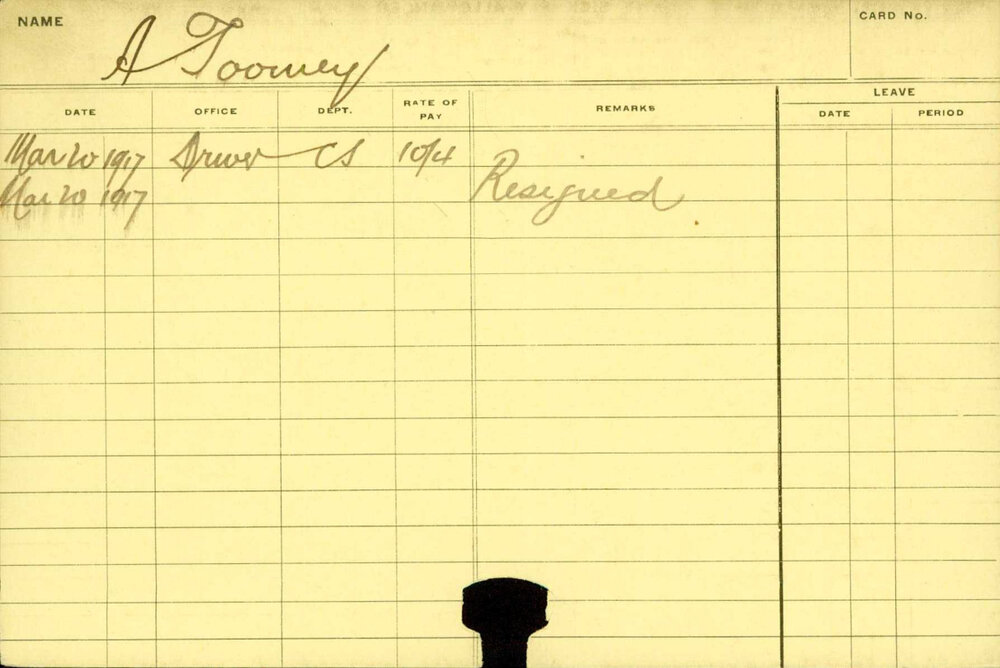 NAME
CARD No.
A Toomey
DATE OFFICE DEPT. RATE OF PAY REMARKS LEAVE
DATE PERIOD
Mar 20 1917 Driver CS 10/4
Mar 20 1917 Resigned